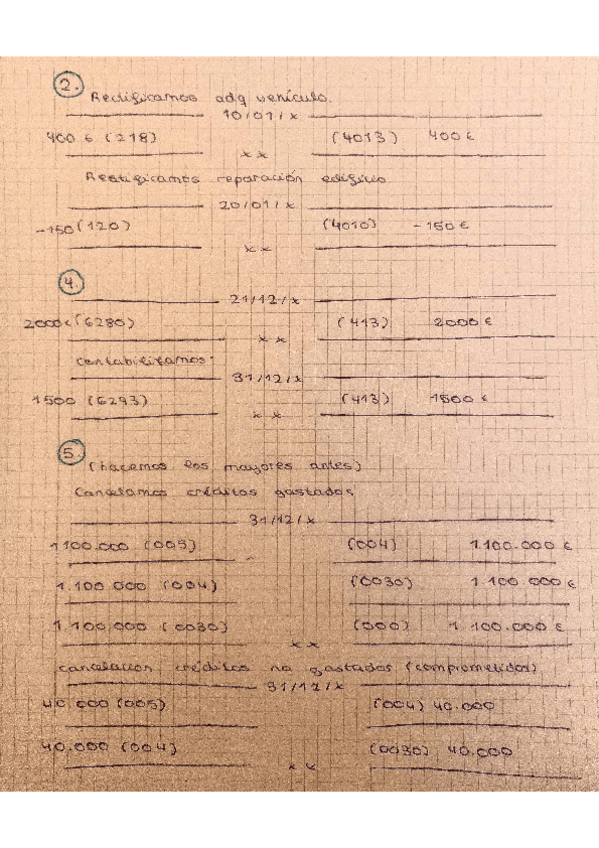 2.
Rectificamos adq vehículo.
10/01/x
400 € (218) (4013) 400 €
x x
Rectificamos reparación edificio
20/01/x
-150 (120) (4010) -150 €
x x
4.
21/12/x
2000 € (6280) (413) 2000 €
x x
Contabilizamos:
31/12/x
1500 (6293) (413) 1500 €
x x
5.
(hacemos los mayores antes)
Cancelamos créditos gastados
31/12/x
1100.000 (005) (004) 1.100.000 €
1.100.000 (004) (0030) 1.100.000 €
1.100.000 (0030) (000) 1.100.000 €
x x
cancelacion créditos no gastados (comprometidos)
31/12/x
40.000 (005) (004) 40.000
40.000 (004) (0030) 40.000
x x